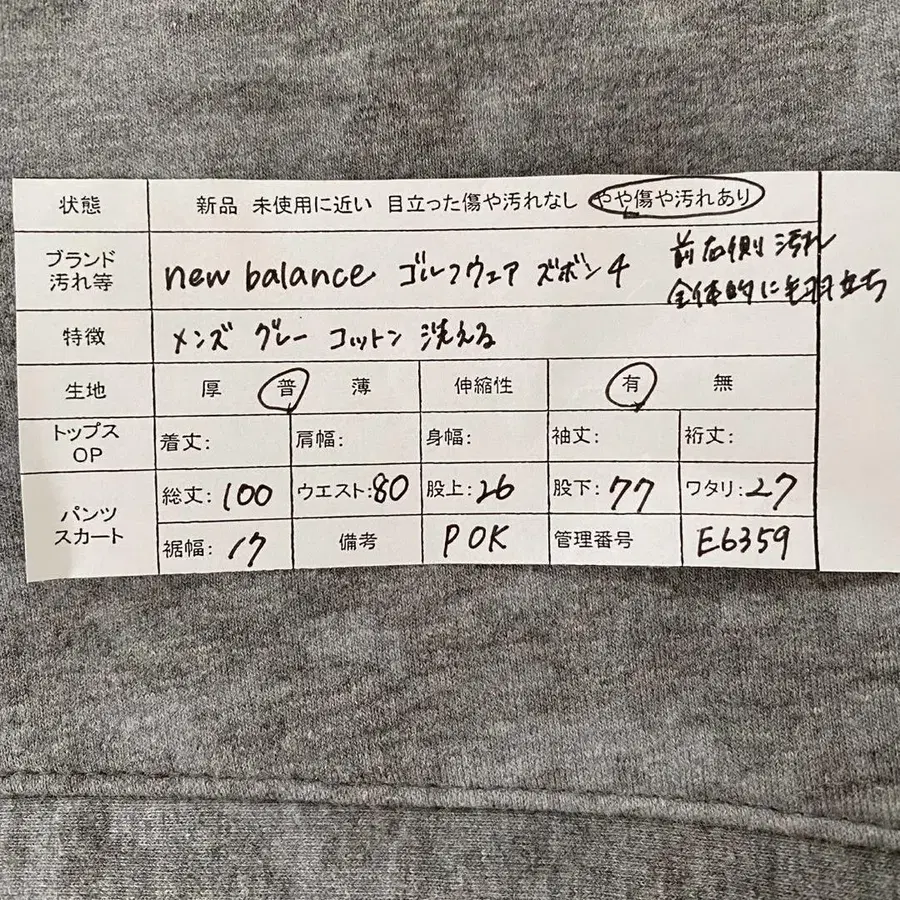 状態 新品 未使用に近い 目立った傷や汚れなし やや傷や汚れあり
ブランド 汚れ等 new balance ゴルフウェア ズボン4 前右側 汚れ
全体的に毛羽立ち
特徴 メンズ グレー コットン 洗える
生地 厚 普 薄 伸縮性 有 無
トップス OP 着丈: 肩幅: 身幅: 袖丈: 裄丈:
パンツ スカート 総丈:100 ウエスト:80 股上:26 股下:77 ワタリ:27
裾幅:17 備考 POK 管理番号 E6359